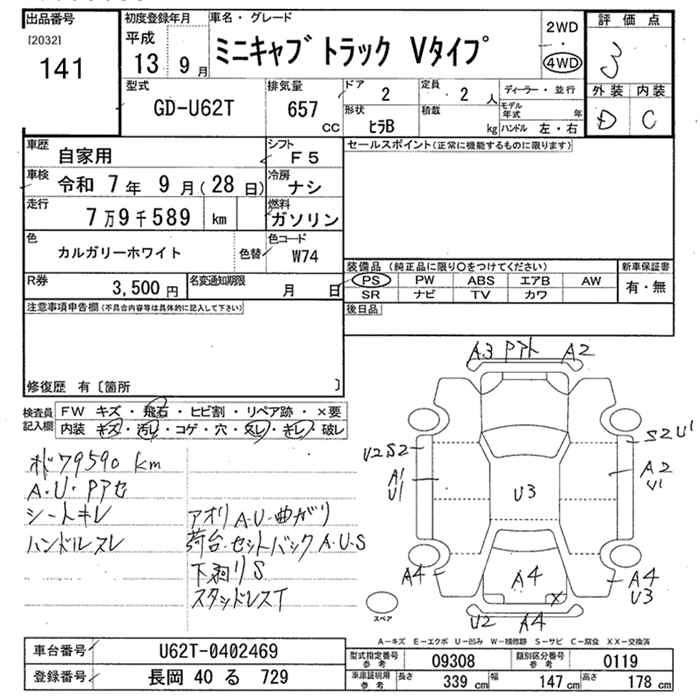 出品番号
[2032]
141
初度登録年月
平成
13 9月
車名・グレード
ミニキャブ トラック Vタイプ
2WD
・
4WD
評価点
3
外装 内装
D C
型式
GD-U62T
排気量
657 cc
ドア
2
定員
2 人
ディーラー・並行
モデル年式 年
形状
ヒラB
積載
kg
ハンドル 左・右
車歴
自家用
シフト
F5
車検
令和 7年 9月(28日)
冷房
ナシ
走行
7万9千589 km
燃料
ガソリン
色
カルガリーホワイト
色替
色コード
W74
R券
3,500円
名変通知期限
月 日
セールスポイント(正常に機能するものに限ります)
装備品(純正品に限り○をつけてください)
PS PW ABS エアB AW
SR ナビ TV カワ
新車保証書
有・無
後日品
注意事項申告欄(不具合内容等は具体的に記入して下さい)
修復歴 有〔箇所 〕
検査員記入欄
FW キズ・飛石・ヒビ割・リペア跡・×要
内装 キズ・汚レ・コゲ・穴・スレ・キレ・破レ
79590 km
A・U・Pアセ
シートキレ
ハンドルスレ
アオリ A・U・曲がり
荷台・セットバック A・U・S
下剥りS
スタッドレスT
A3 Pアト A2
U2S2
S2U1
A1
U1
A2
U1
U3
A4
A4
A4
U3
U2 A4
スペア
A-キズ E-エクボ U-凹み W-補修跡 S-サビ C-腐食 XX-交換済
車台番号
U62T-0402469
登録番号
長岡 40 る 729
型式指定番号
参考
09308
類別区分番号
参考
0119
車庫証明用
参考
長さ
339 cm
幅
147 cm
高さ
178 cm